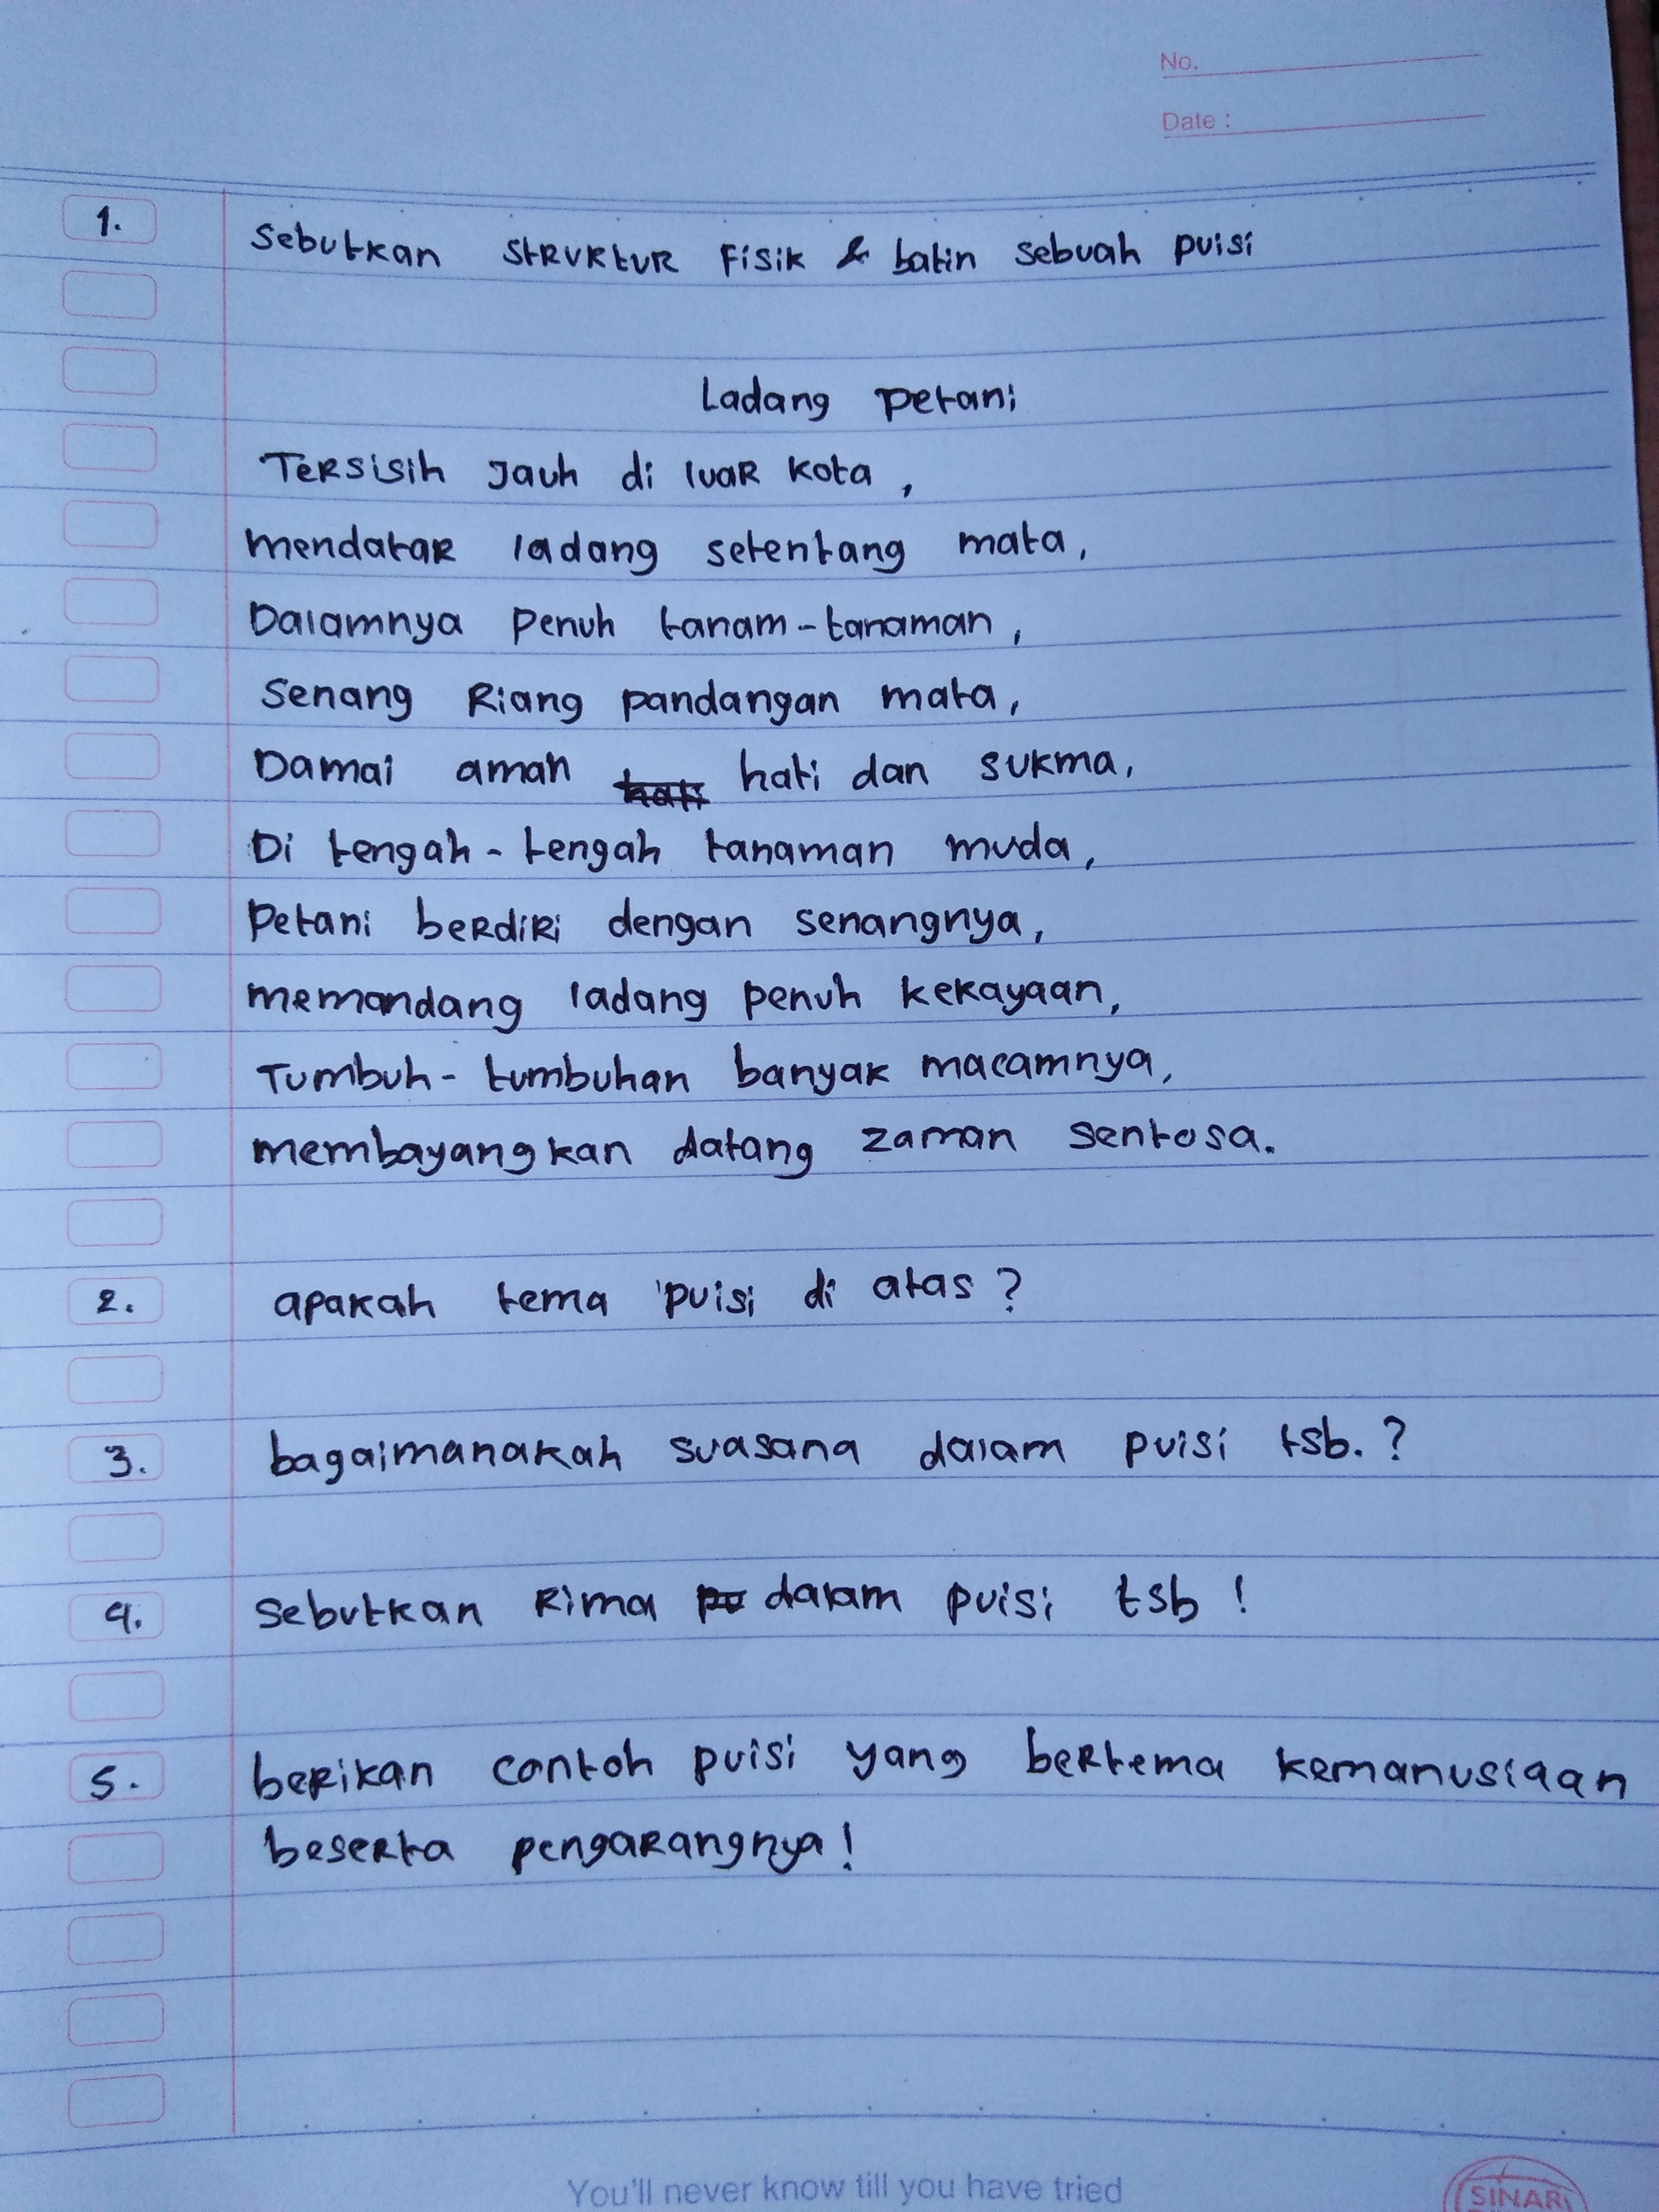 No.
Date :
1. Sebutkan struktur fisik & batin sebuah puisi
Ladang Petani
Tersisih Jauh di luar kota,
mendatar ladang setentang mata,
Dalamnya penuh tanam-tanaman,
Senang Riang pandangan mata,
Damai aman hati dan sukma,
Di tengah-tengah tanaman muda,
Petani berdiri dengan senangnya,
memandang ladang penuh kekayaan,
Tumbuh-tumbuhan banyak macamnya,
membayangkan datang zaman sentosa.
2. apakah tema puisi di atas?
3. bagaimanakah suasana dalam puisi tsb.?
4. Sebutkan Rima dalam puisi tsb!
5. berikan contoh puisi yang bertema kemanusiaan
beserta pengarangnya!
You'll never know till you have tried
SINAR